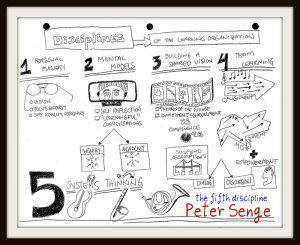 Disciplines
OF THE LEARNING ORGANIZATION
1 PERSONAL
MASTERY
2 MENTAL
MODELS
3 BUILDING A
SHARED VISION
4 TEAM
LEARNING
VISION
FOCUS ENERGY
SEE REALITY
SELF REFLECTION
"LEARNINGFUL"
CONVERSATIONS
COMMITMENT
VS
COMPLIANCE
ALIGNMENT
INQUIRY
ADVOCACY
SUSPEND
ASSUMPTIONS
DIALOG
DISCUSSION
+
EMPOWERMENT
5 SYSTEMS THINKING
the fifth discipline
Peter Senge